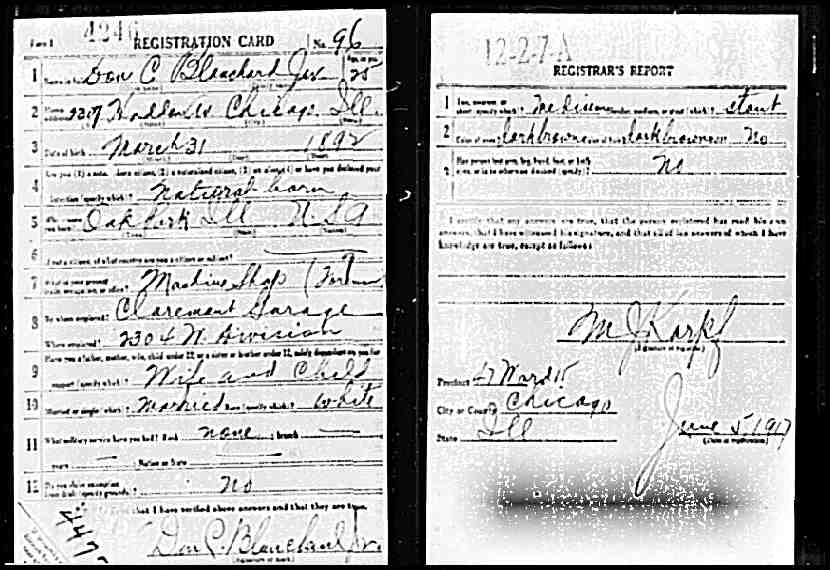 Form 1 4246 REGISTRATION CARD No. 96
1 Don C Blanchard Jr Age, in yrs. 25
2 Home address Chicago Ill.
3 Date of birth March 31 1892
4 Are you (1) a natural-born citizen, (2) a naturalized citizen, (3) an alien, (4) or have you declared your
intention (specify which)? Natural born
5 Where were you born? Oak Park Ill U.S.A
6 If not a citizen, of what country are you a citizen or subject?
7 What is your present trade, occupation, or office? Machine Shop
8 By whom employed? Claremont Garage
Where employed? 2304 W. Division
9 Have you a father, mother, wife, child under 12, or a sister or brother under 12, solely dependent on you for
support (specify which)? Wife and Child
10 Married or single (which)? Married Race (specify which)? White
11 What military service have you had? Rank none ; branch
years ; Nation or State
12 Do you claim exemption from draft (specify grounds)? No
that I have verified above answers and that they are true.
447
Don C. Blanchard Jr.
12-2-7-A
REGISTRAR'S REPORT
1 Tall, medium, or short (specify which)? Medium Slender, medium, or stout (which)? Stout
2 Color of eyes? Dark brown Color of hair? Dark brown Bald? No
3 Has person lost arm, leg, hand, foot, or both eyes, or is he otherwise disabled (specify)? No
I certify that my answers are true, that the person registered has read his own
answers, that I have witnessed his signature, and that all of his answers of which I have
knowledge are true, except as follows:
M J Karpf
(Signature of registrar)
Precinct 47 Ward 15
City or County Chicago
State Ill
June 5, 1917
(Date of registration)